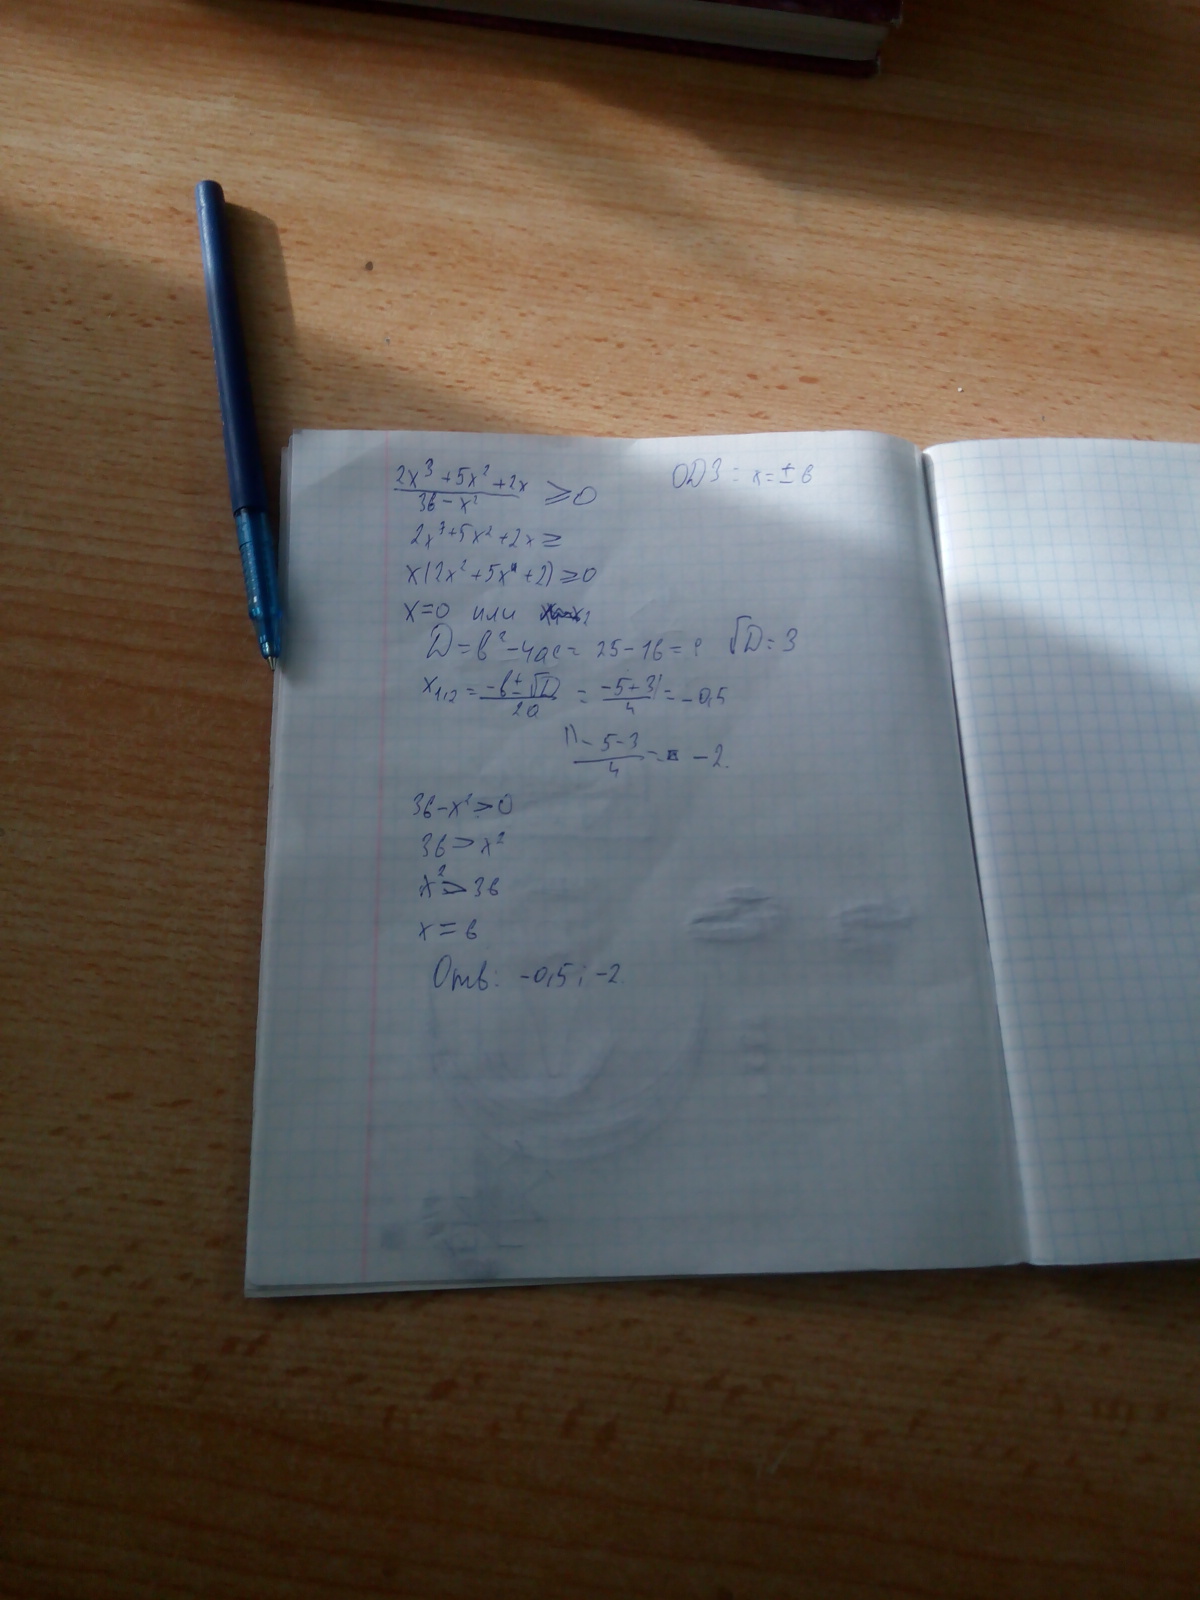 (2x³+5x²+2x)/(36-x²) ≥0 ОДЗ = x=±6
2x³+5x²+2x≥
x(2x²+5x+2)≥0
x=0 или
D=b²-4ac= 25-16=9 √D=3
x₁,₂=(-b±√D)/2a = (-5+3)/4=-0,5
(-5-3)/4= -2.
36-x²>0
36>x²
x²>36
x=6
Отв: -0,5; -2.